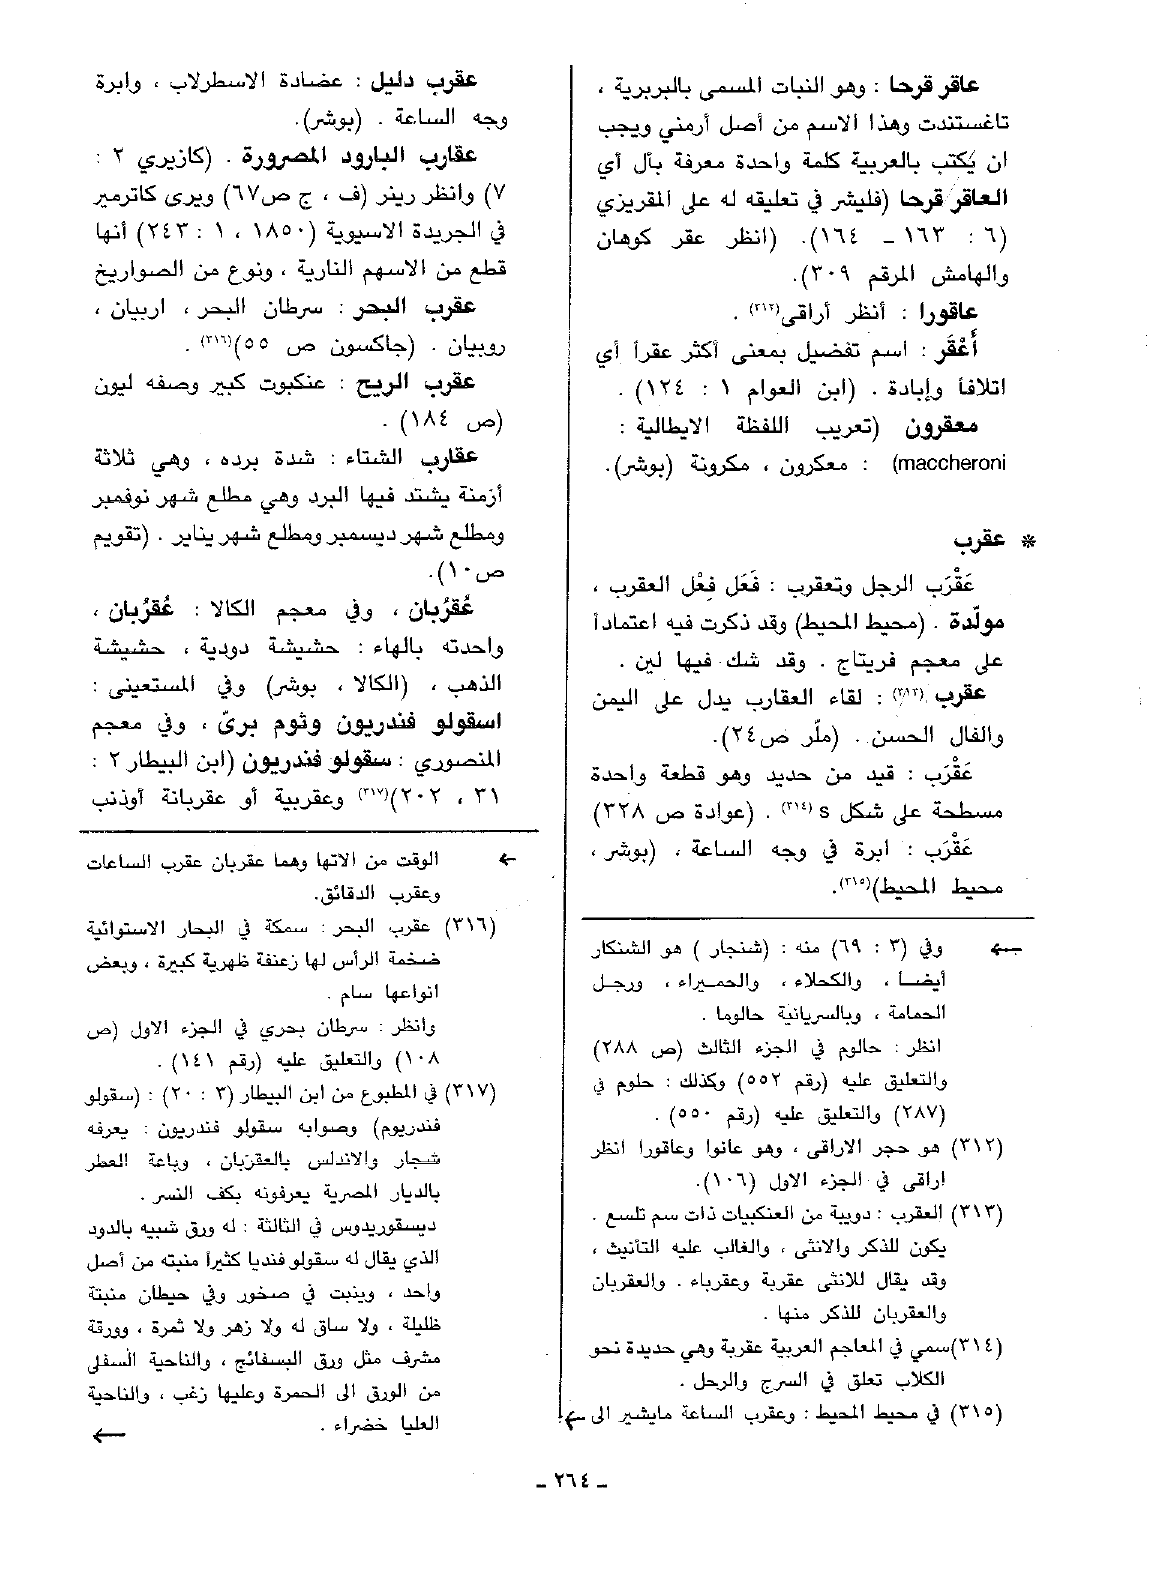 عاقر قرحا : وهو النبات المسمى بالبربرية ،
تاغستندت وهذا الاسم من أصل أرمني ويجب
ان يُكتب بالعربية كلمة واحدة معرفة بآل أي
العاقر قرحا (فليشر في تعليقه له على المقريزي
(٦ : ١٦٣ ـ ١٦٤). (انظر عقر كوهان
والهامش المرقم ٣٠٩).
عاقورا : أنظر أراقى(٣١٢) .
أَعْقَر : اسم تفضيل بمعنى أكثر عقراً أي
اتلافاً وإبادة . (ابن العوام ١ : ١٢٤) .
معقرون (تعريب اللفظة الايطالية :
maccheroni) : معكرون ، مكرونة (بوشر).
* عقرب
عَقْرَب الرجل وتعقرب : فَعَل فِعْل العقرب ،
مولّدة . (محيط المحيط) وقد ذكرت فيه اعتماداً
على معجم فريتاج . وقد شك فيها لين .
عقرب (٣١٣) : لقاء العقارب يدل على اليمن
والفال الحسن . (ملّر ص٢٤).
عَقْرَب : قيد من حديد وهو قطعة واحدة
مسطحة على شكل s (٣١٤) . (عوادة ص ٣٢٨)
عَقْرَب : ابرة في وجه الساعة ، (بوشر ،
محيط المحيط)(٣١٥).
← وفي (٣ : ٦٩) منه : (شنجار ) هو الشنكار
أيضا ، والكحلاء ، والحميراء ، ورجل
الحمامة ، وبالسريانية حالوما .
انظر : حالوم في الجزء الثالث (ص ٢٨٨)
والتعليق عليه (رقم ٥٥٢) وكذلك : حلوم في
(٢٨٧) والتعليق عليه (رقم ٥٥٠) .
(٣١٢) هو حجر الاراقى ، وهو عانوا وعاقورا انظر
اراقى في الجزء الاول (١٠٦).
(٣١٣) العقرب : دويبة من العنكبيات ذات سم تلسع .
يكون للذكر والانثى ، والغالب عليه التأنيث ،
وقد يقال للانثى عقربة وعقرباء . والعقربان
والعقربان للذكر منها .
(٣١٤)سمي في المعاجم العربية عقربة وهي حديدة نحو
الكلاب تعلق في السرج والرحل .
(٣١٥) في محيط المحيط : وعقرب الساعة مايشير الى ←
عقرب دليل : عضادة الاسطرلاب ، وابرة
وجه الساعة . (بوشر).
عقارب البارود المصرورة . (كازيري ٢ :
٧) وانظر رينر (ف ، ج ص٦٧) ويرى كاترمير
في الجريدة الاسيوية (١٨٥٠ ، ١ : ٢٤٣) أنها
قطع من الاسهم النارية ، ونوع من الصواريخ
عقرب البحر : سرطان البحر ، اربيان ،
روبيان . (جاكسون ص ٥٥)(٣١٦) .
عقرب الريح : عنكبوت كبير وصفه ليون
(ص ١٨٤) .
عقارب الشتاء : شدة برده ، وهي ثلاثة
أزمنة يشتد فيها البرد وهي مطلع شهر نوفمبر
ومطلع شهر ديسمبر ومطلع شهر يناير . (تقويم
ص١٠).
عُقرُبان ، وفي معجم الكالا : عُقرُبان ،
واحدته بالهاء : حشيشة دودية ، حشيشة
الذهب ، (الكالا ، بوشر) وفي المستعيني :
اسقولو فندريون وثوم بريّ ، وفي معجم
المنصوري : سقولو فندريون (ابن البيطار ٢ :
٣١ ، ٢٠٢)(٣١٧) وعقربية أو عقربانة أوذنب
← الوقت من الاتها وهما عقربان عقرب الساعات
وعقرب الدقائق.
(٣١٦) عقرب البحر : سمكة في البحار الاستوائية
ضخمة الرأس لها زعنفة ظهرية كبيرة ، وبعض
انواعها سام .
وانظر : سرطان بحري في الجزء الاول (ص
١٠٨) والتعليق عليه (رقم ١٤١) .
(٣١٧) في المطبوع من ابن البيطار (٣ : ٢٠) : (سقولو
فندريوم) وصوابه سقولو فندريون : يعرفه
شجار والاندلس بالعقربان ، وباعة العطر
بالديار المصرية يعرفونه بكف النسر .
ديسقوريدوس في الثالثة : له ورق شبيه بالدود
الذي يقال له سقولو فنديا كثيراً منبته من أصل
واحد ، وينبت في صخور وفي حيطان منبتة
ظليلة ، ولا ساق له ولا زهر ولا ثمرة ، وورقة
مشرف مثل ورق البسفائج ، والناحية السفلى
من الورق الى الحمرة وعليها زغب ، والناحية
العليا خضراء . ←
ـ ٢٦٤ ـ